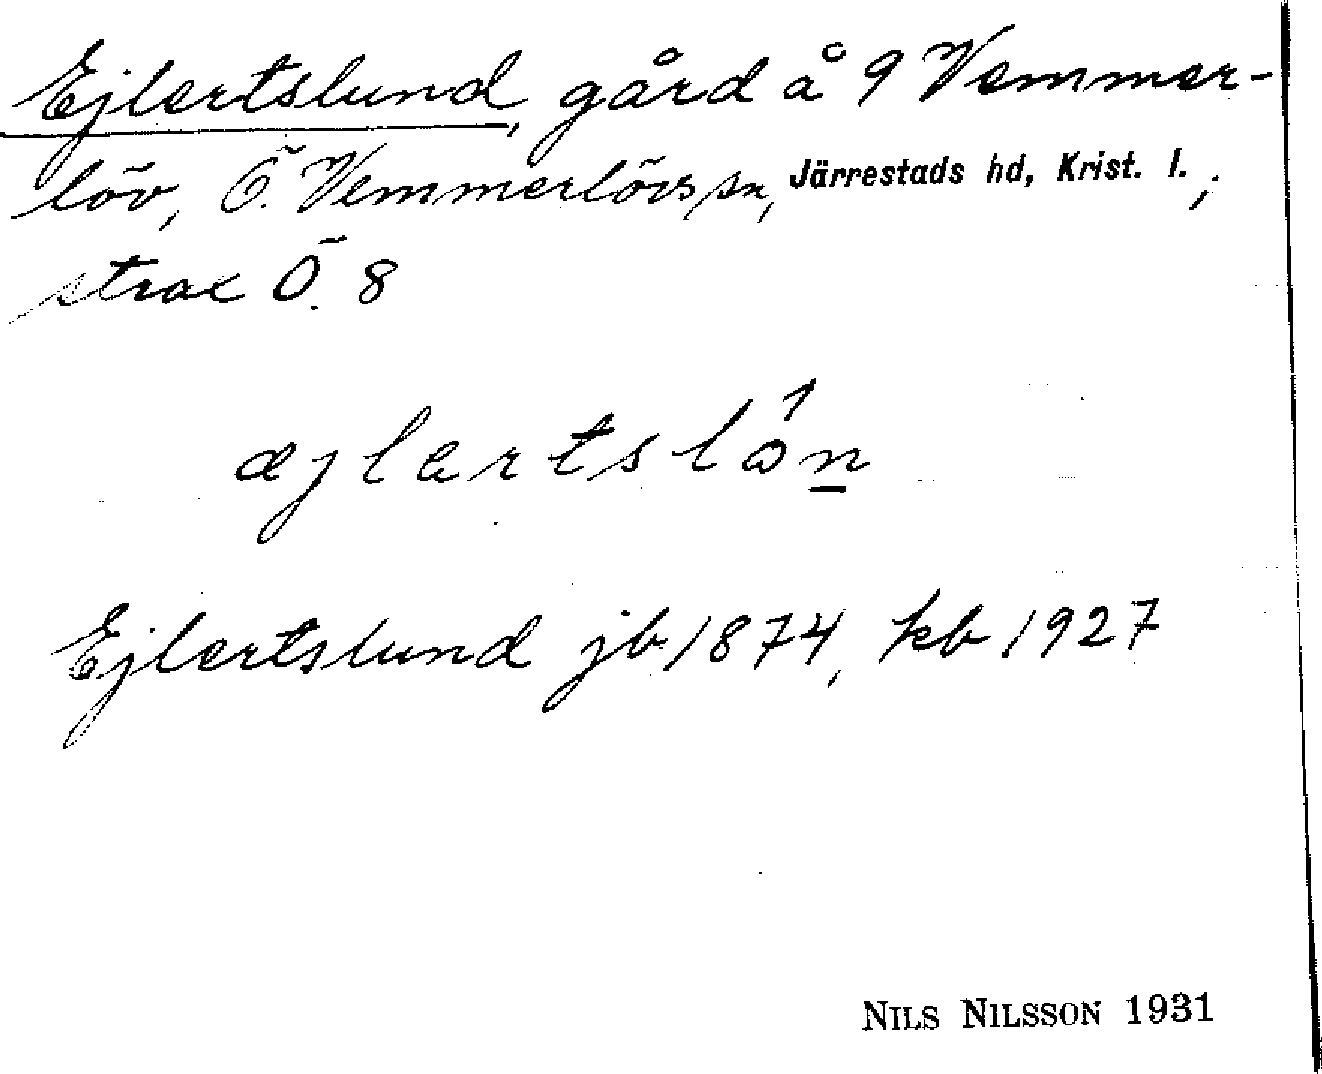 Ejlertslund, gård å 9 Vemmer-
löv, Ö. Vemmerlövs sn, Järrestads hd, Krist. l.,
strax Ö. 8
æjlertslón
Ejlertslund jb 1874, kb 1927
NILS NILSSON 1931